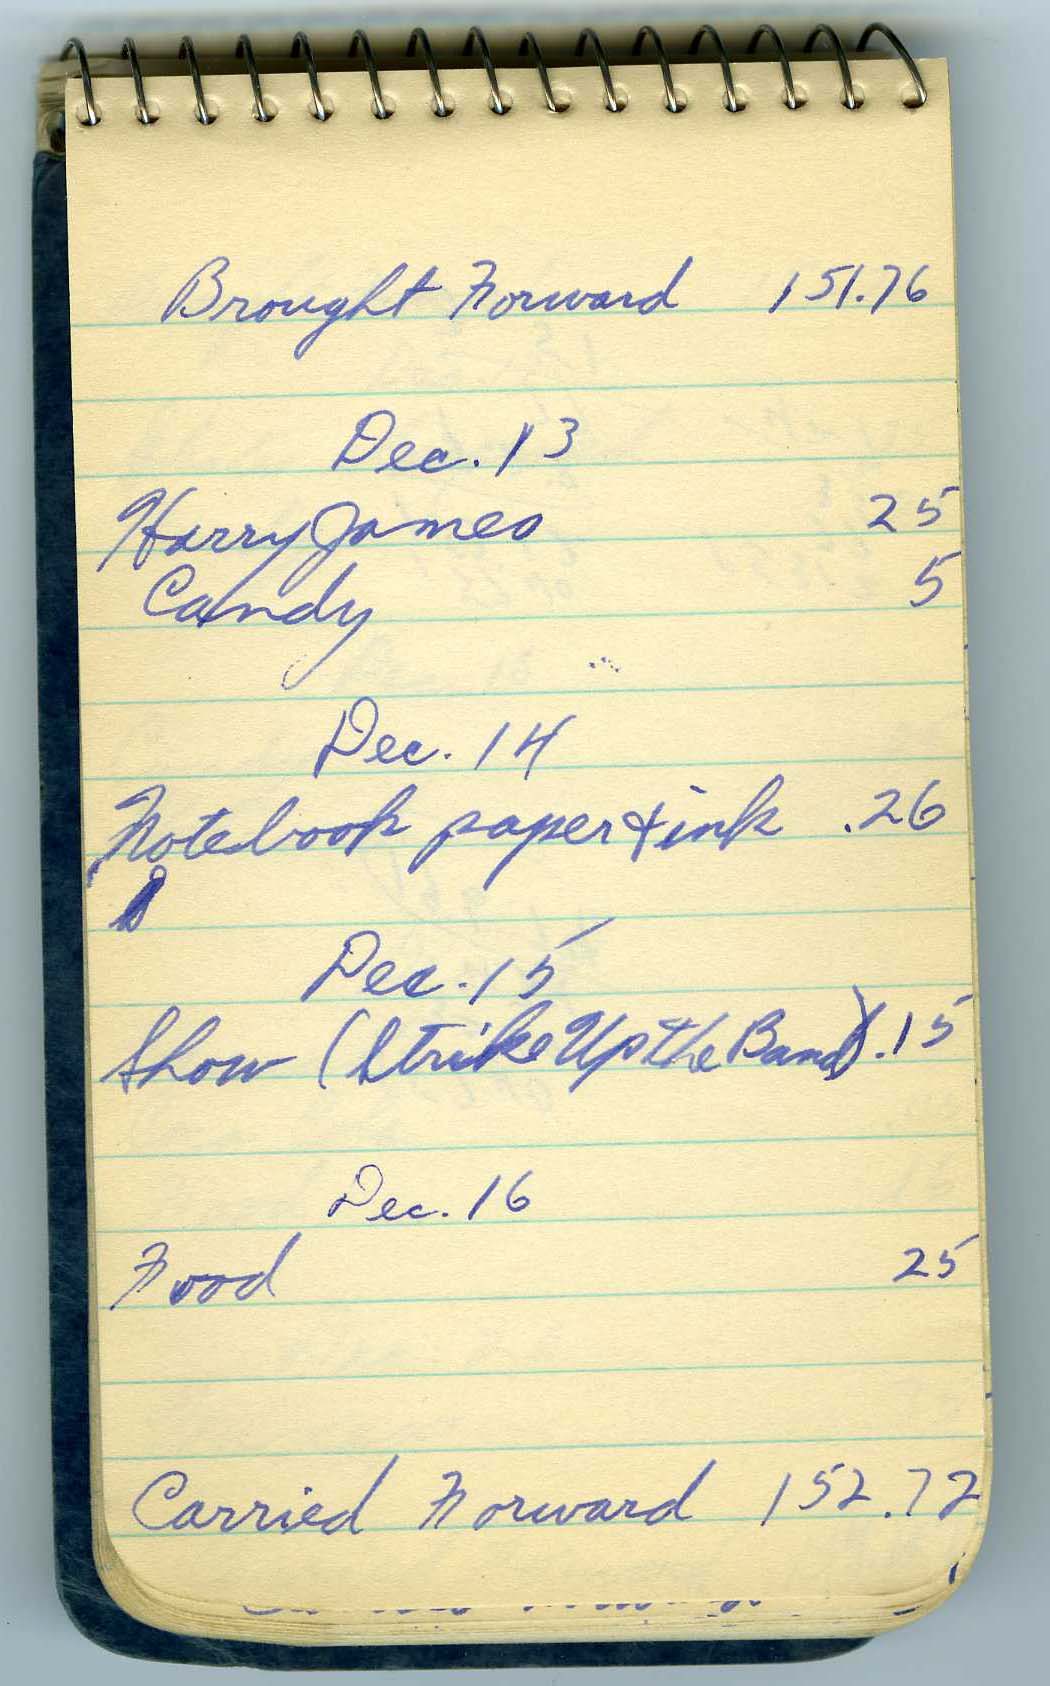 Brought Forward 151.76
Dec. 13
Harry James 25
Candy 5
Dec. 14
Notebook paper & ink .26
Dec. 15
Show (Strike Up the Band) .15
Dec. 16
Food 25
Carried Forward 152.72